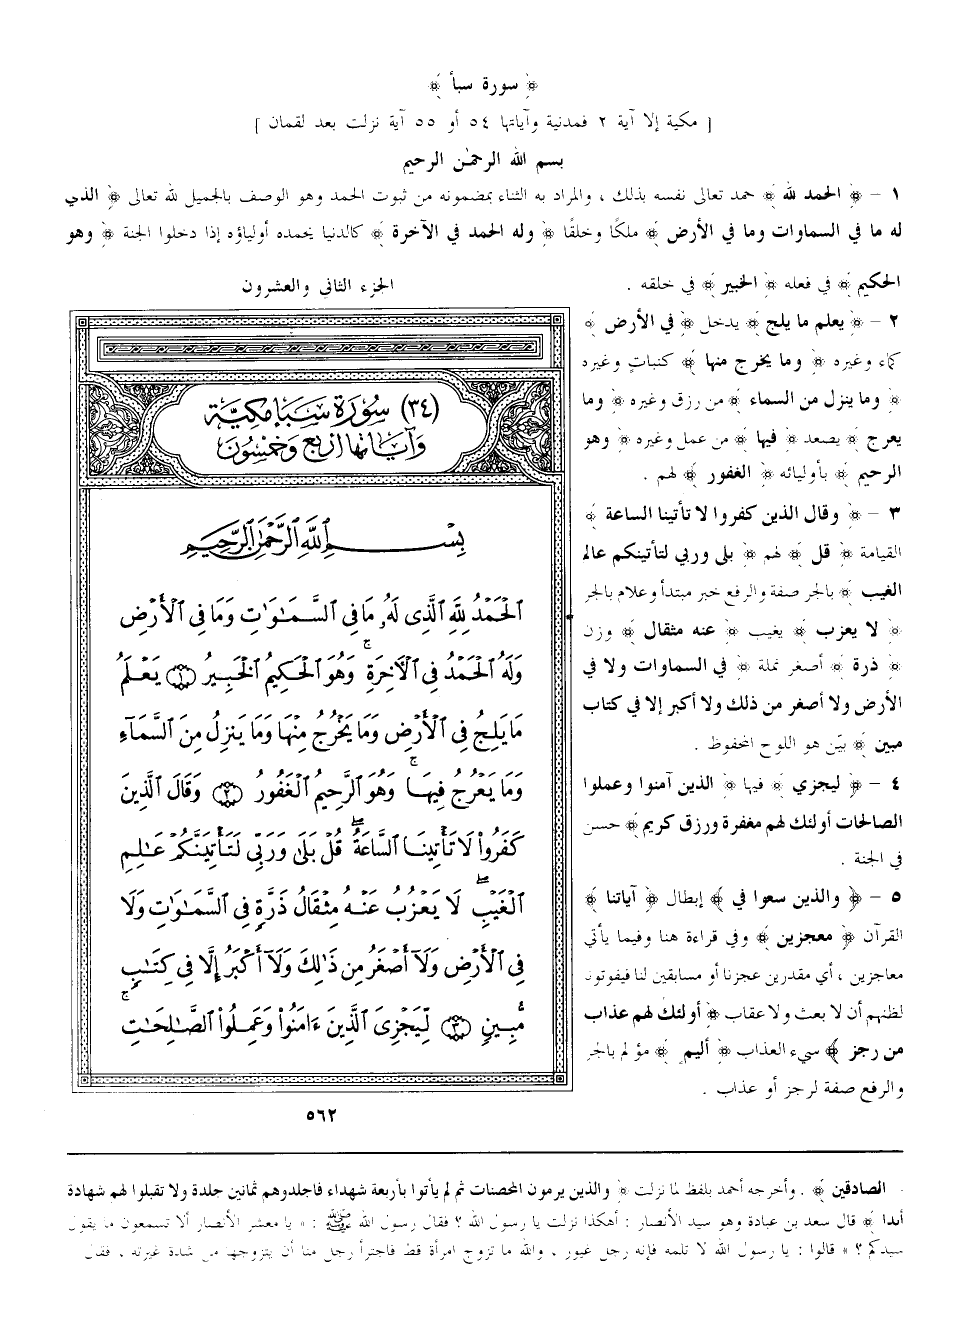 ﴿ سورة سبأ ﴾
[ مكية إلا آية ٢ فمدنية وآياتها ٥٤ أو ٥٥ آية نزلت بعد لقمان ]
بسم الله الرحمٰن الرحيم
١ – ﴿ الحمد لله ﴾ حمد تعالى نفسه بذلك ، والمراد به الثناء بمضمونه من ثبوت الحمد وهو الوصف بالجميل لله تعالى ﴿ الذي
له ما في السماوات وما في الأرض ﴾ ملكًا وخلقًا ﴿ وله الحمد في الآخرة ﴾ كالدنيا يحمده أولياؤه إذا دخلوا الجنة ﴿ وهو
الحكيم ﴾ في فعله ﴿ الخبير ﴾ في خلقه .
٢ – ﴿ يعلم ما يلج ﴾ يدخل ﴿ في الأرض ﴾
كماء وغيره ﴿ وما يخرج منها ﴾ كنبات وغيره
﴿ وما ينزل من السماء ﴾ من رزق وغيره ﴿ وما
يعرج ﴾ يصعد ﴿ فيها ﴾ من عمل وغيره ﴿ وهو
الرحيم ﴾ بأوليائه ﴿ الغفور ﴾ لهم .
٣ – ﴿ وقال الذين كفروا لا تأتينا الساعة ﴾
القيامة ﴿ قل ﴾ لهم ﴿ بلى وربي لتأتينكم عالم
الغيب ﴾ بالجر صفة والرفع خبر مبتدأ وعلام بالجر
﴿ لا يعزب ﴾ يغيب ﴿ عنه مثقال ﴾ وزن
﴿ ذرة ﴾ أصغر نملة ﴿ في السماوات ولا في
الأرض ولا أصغر من ذلك ولا أكبر إلا في كتاب
مبين ﴾ بيّن هو اللوح المحفوظ .
٤ – ﴿ ليجزي ﴾ فيها ﴿ الذين آمنوا وعملوا
الصالحات أولئك لهم مغفرة ورزق كريم ﴾ حسن
في الجنة .
٥ – ﴿ والذين سعوا في ﴾ إبطال ﴿ آياتنا ﴾
القرآن ﴿ معجزين ﴾ وفي قراءة هنا وفيما يأتي
معاجزين ، أي مقدرين عجزنا أو مسابقين لنا فيفوتونا
لظنهم أن لا بعث ولا عقاب ﴿ أولئك لهم عذاب
من رجز ﴾ سيء العذاب ﴿ أليم ﴾ مؤلم بالجر
والرفع صفة لرجز أو عذاب .
الجزء الثاني والعشرون
(٣٤) سُورَة سَبَإ مكيّة
وَآيَاتُهَا أَرْبَع وَخَمْسُونَ
بِسْمِ ٱللَّهِ ٱلرَّحْمَٰنِ ٱلرَّحِيمِ
ٱلْحَمْدُ لِلَّهِ ٱلَّذِى لَهُۥ مَا فِى ٱلسَّمَٰوَٰتِ وَمَا فِى ٱلْأَرْضِ
وَلَهُ ٱلْحَمْدُ فِى ٱلْءَاخِرَةِ ۚ وَهُوَ ٱلْحَكِيمُ ٱلْخَبِيرُ ﴿١﴾ يَعْلَمُ
مَا يَلِجُ فِى ٱلْأَرْضِ وَمَا يَخْرُجُ مِنْهَا وَمَا يَنزِلُ مِنَ ٱلسَّمَآءِ
وَمَا يَعْرُجُ فِيهَا ۚ وَهُوَ ٱلرَّحِيمُ ٱلْغَفُورُ ﴿٢﴾ وَقَالَ ٱلَّذِينَ
كَفَرُوا۟ لَا تَأْتِينَا ٱلسَّاعَةُ ۖ قُلْ بَلَىٰ وَرَبِّى لَتَأْتِيَنَّكُمْ عَٰلِمِ
ٱلْغَيْبِ ۖ لَا يَعْزُبُ عَنْهُ مِثْقَالُ ذَرَّةٍ فِى ٱلسَّمَٰوَٰتِ وَلَا
فِى ٱلْأَرْضِ وَلَآ أَصْغَرُ مِن ذَٰلِكَ وَلَآ أَكْبَرُ إِلَّا فِى كِتَٰبٍ
مُّبِينٍ ۚ ﴿٣﴾ لِّيَجْزِىَ ٱلَّذِينَ ءَامَنُوا۟ وَعَمِلُوا۟ ٱلصَّٰلِحَٰتِ
٥٦٢
الصادقين ﴾ . وأخرجه أحمد بلفظ لما نزلت ﴿ والذين يرمون المحصنات ثم لم يأتوا بأربعة شهداء فاجلدوهم ثمانين جلدة ولا تقبلوا لهم شهادة
أبدا ﴾ قال سعد بن عبادة وهو سيد الأنصار : أهكذا نزلت يا رسول الله ؟ فقال رسول الله ﷺ : « يا معشر الأنصار ألا تسمعون ما يقول
سيدكم ؟ » قالوا : يا رسول الله لا تلمه فإنه رجل غيور ، والله ما تزوج امرأة قط فاجترأ رجل منا أن يتزوجها من شدة غيرته ، فقال